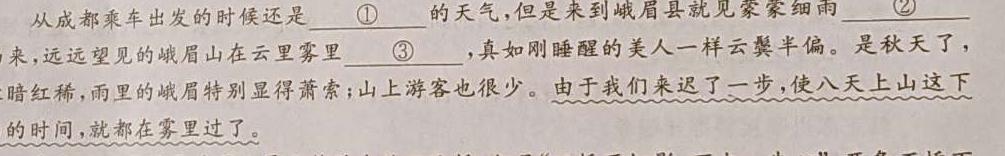 从成都乘车出发的时候还是①的天气,但是来到峨眉县就见蒙蒙细雨②
来,远远望见的峨眉山在云里雾里③,真如刚睡醒的美人一样云鬓半偏。是秋天了,
暗红稀,雨里的峨眉特别显得萧索;山上游客也很少。由于我们来迟了一步,使八天上山这下
的时间,就都在雾里过了。